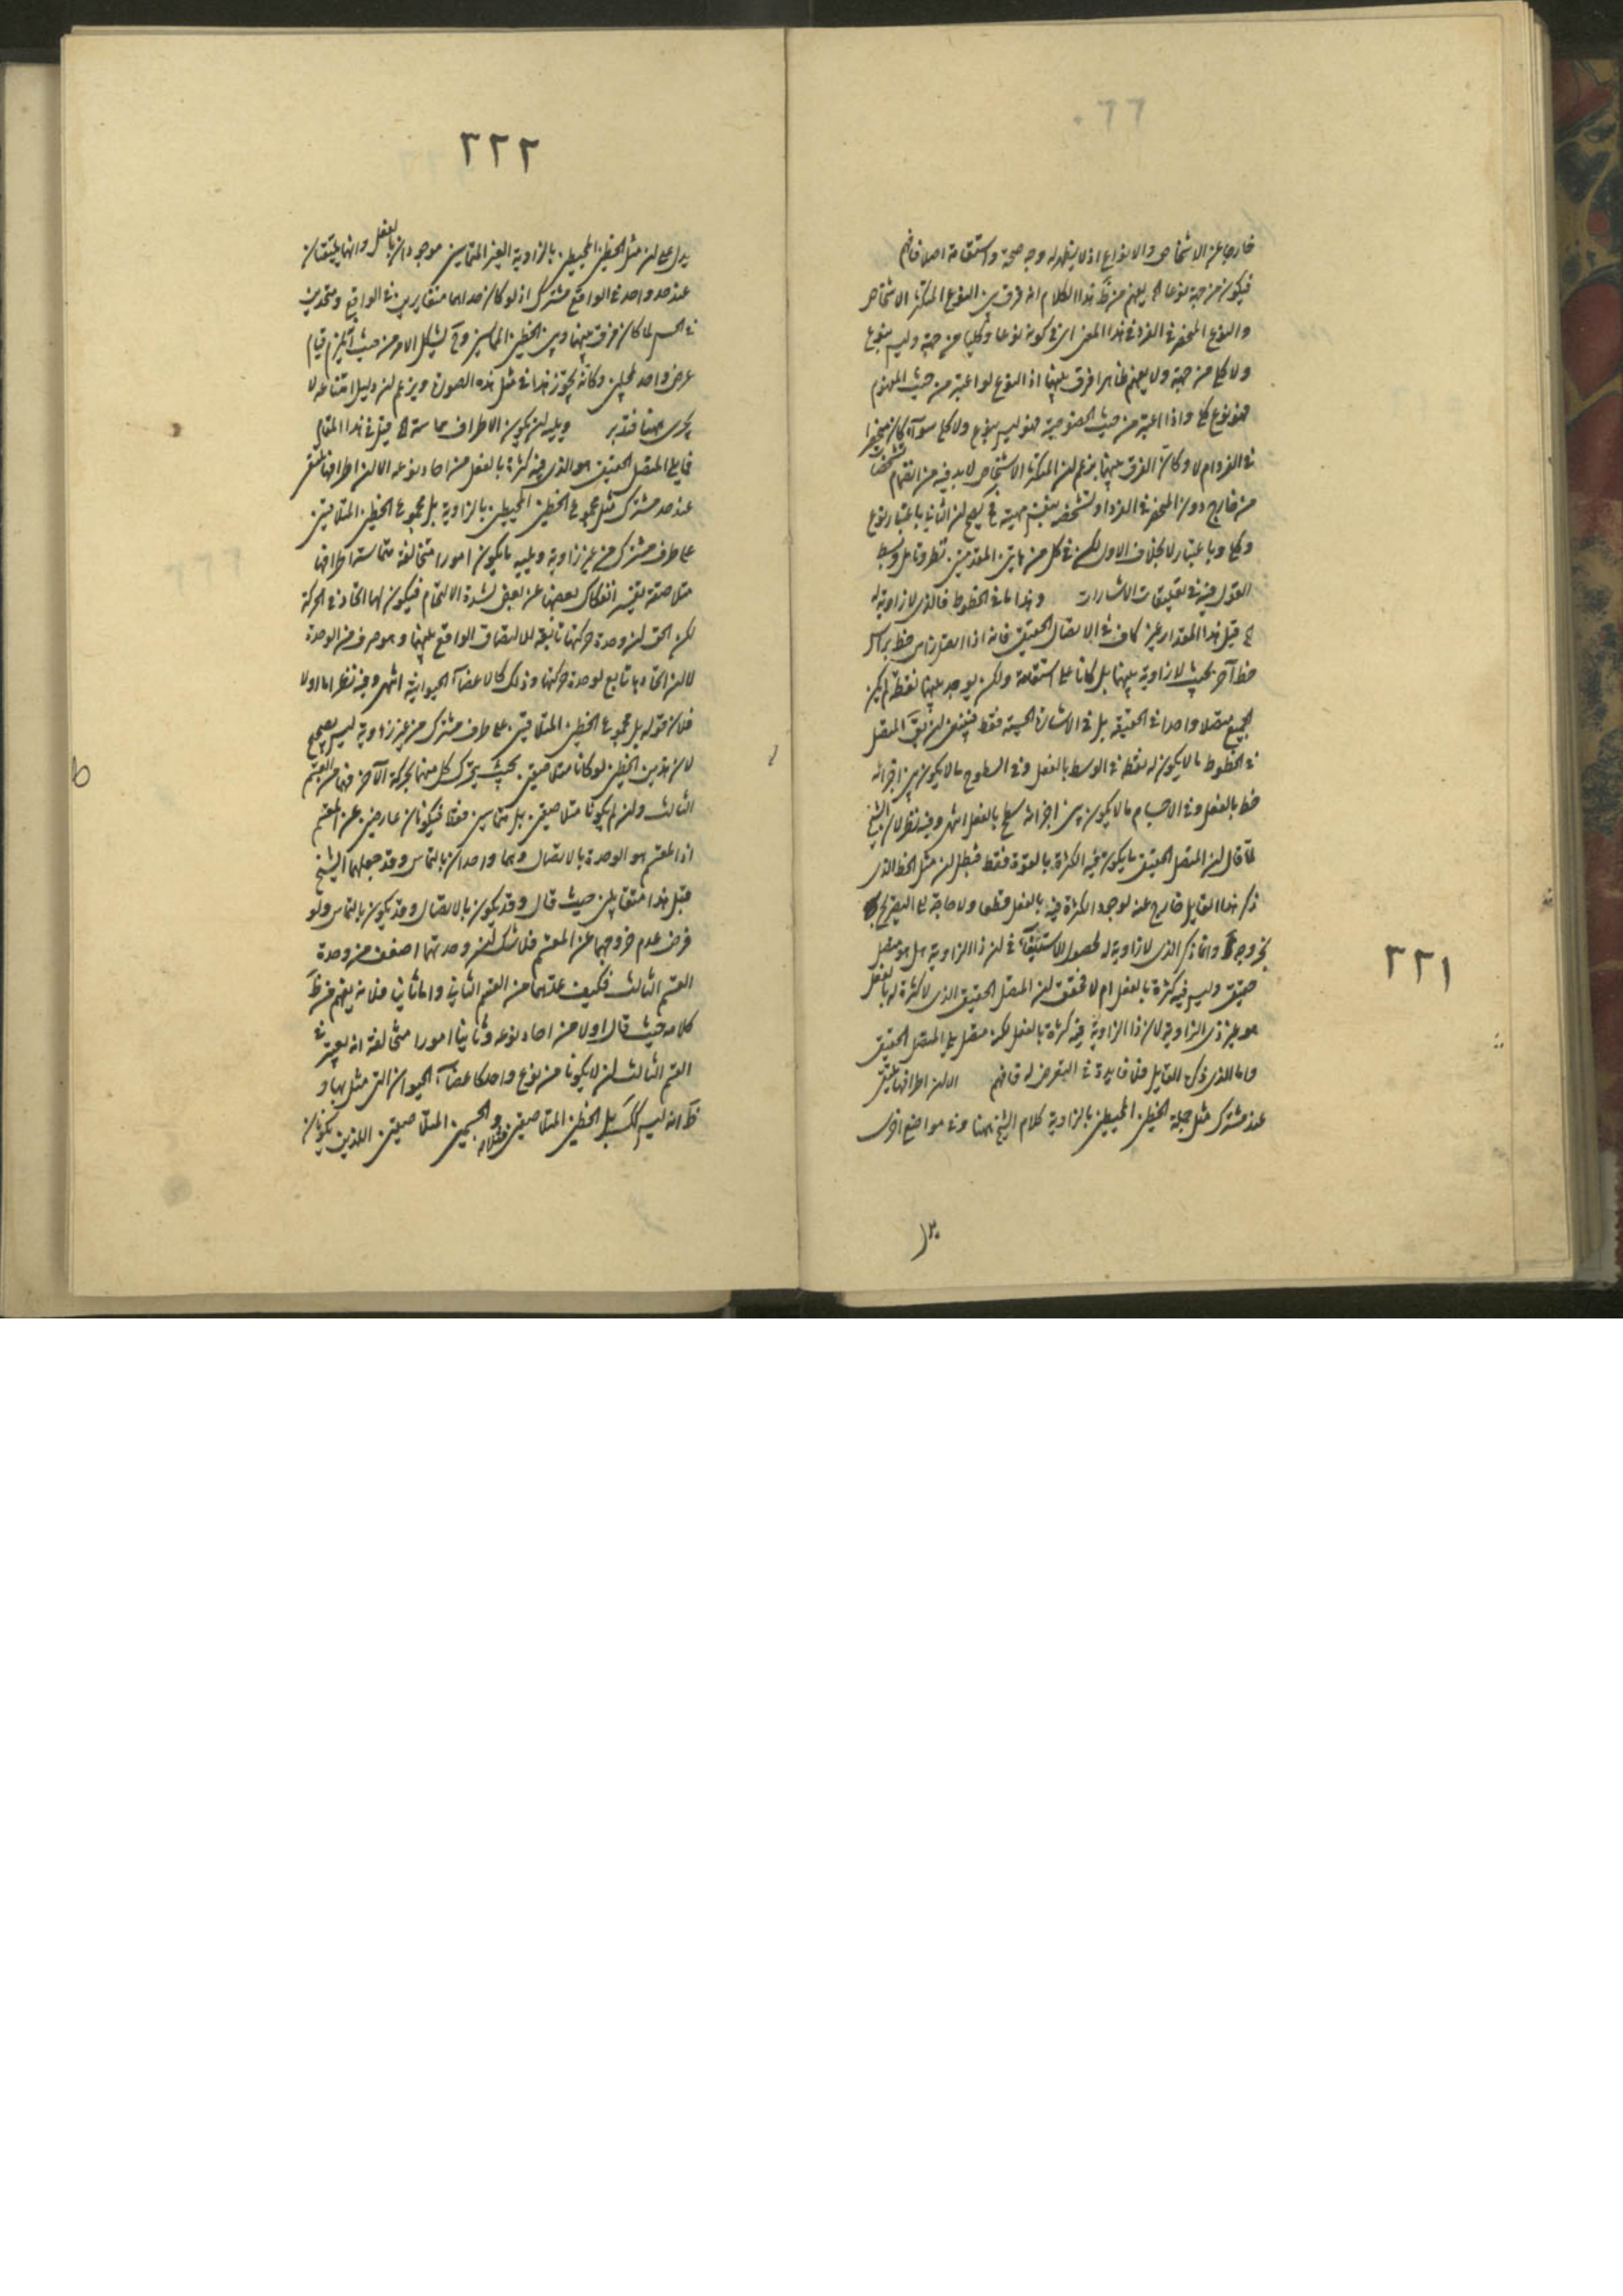 خارجا عن الاشخاص والانواع اذ لا يظهر له وجه صحة واستقامة اصلا فافهم
فيكون من جهة نوعا الخ يفهم من ظ هذا الكلام انه فرق بين النوع المتكثر الاشخاص
والنوع المنحصر في الفرد في هذا المعنى اى في كونه نوعا وكليا من جهة وليس بنوع
ولا كلى من جهة ولا يفهم ظاهرا فرق بينهما اذ النوع لو اعتبر من حيث المفهوم
فهو نوع كلى واذا اعتبر من حيث الخصوصية فهو ليس بنوع ولا كلى سواء كان منحصرا
في الفرد ام لا وكان الفرق بينهما بزعم ان المتكثر الاشخاص لابد فيه من انضمام مشخصات
من خارج دون المنحصر في الفرد اذ تشخصه بنفس مهيته فح يصح ان الثاني باعتبار نوع
وكلى وباعتبار لا بخلاف الاول لكن في كل من هاتين المقدمتين نظر وتامل وبسط
القول فيه في تعليقات الاشارات وهذا ما في الخطوط فالذى لا زاوية له
الخ قيل هذا المقدار غير كاف في الاتصال الحقيقى فانه اذا اتصل راس خط براس
خط آخر بحيث لا زاوية بينهما بل كانا على استقامة ولكن يوجد بينهما نقطة لم يكن
الجميع متصلا واحدا في الحقيقة بل في الاشارة الحسية فقط فينبغى ان يق المتصل
في الخطوط ما لا يكون له نقطة في الوسط بالفعل وفي السطوح ما لا يكون بين اجزائه
خط بالفعل وفي الاجسام ما لا يكون بين اجزائه سطح بالفعل انتهى وفيه نظر لان الشيخ
لما قال ان المتصل الحقيقى ما يكون فيه الكثرة بالقوة فقط فبطل ان مثل الخط الذى
ذكر هذا القايل خارج عنه لوجود الكثرة فيه بالفعل قطعا ولا حاجة الى التصريح
بخروجه وانما ذكر الذى لا زاوية له لحصول الاشتباه في ان ذا الزاوية هل هو متصل
حقيقى وليس فيه كثرة بالفعل ام لا فحقق ان المتصل الحقيقى الذى لا كثرة له بالفعل
هو غير ذى الزاوية لان ذا الزاوية فيه كثرة بالفعل لكنه متصل يلى المتصل الحقيقى
واما الذى ذكره القايل فلا فايدة في التعرض له فافهم الا ان اطرافها تلتقى
عند مشترك مثل جملة الخطين المحيطين بالزاوية كلام الشيخ ههنا وفي مواضع اخرى
٢٢١
٢٢٢
يدل على ان مثل الخطين المحيطين بالزاوية الغير المتماسين موجودان بالفعل وانهما يلتقيان
عند حد واحد في الواقع مشترك اذ لو كان حداهما متغايرين في الواقع ومتحدين
في الحس لما كان فرق بينهما وبين الخطين المماسين وح يشكل الامر من حيث انه يلزم قيام
عرض واحد لمحلين وكانه يجوز هذا في مثل هذه الصورة ويزعم ان دليل امتناعه لا
يجرى ههنا فتدبر ويليه ان يكون الاطراف مماسة الخ قيل في هذا المقام
فما يلى المتصل الحقيقى هو الذى فيه كثرة بالفعل من احاد نوعه الا ان اطرافها تلتقى
عند حد مشترك مثل مجموع الخطين المحيطين بالزاوية بل مجموع الخطين المتلاقيين
على طرف مشترك من غير زاوية ويليه ما يكون امورا متخالفة متماسة اطرافها
متلاصقة يعسر انفكاك بعضها عن بعض لشدة الالتحام فيكون لها اتحاد في الحركة
لكن الحق ان وحدة حركتها تابعة للالتصاق الواقع بينهما وهو ضرب من الوحدة
لا ان اتحادها تابع لوحدة حركتها وذلك كالاعضاء الحيوانية انتهى وفيه نظر اما اولا
فلان قوله بل مجموع الخطين المتلاقيين على طرف مشترك من غير زاوية ليس بصحيح
لان هذين الخطين لو كانا متلاصقين بحيث يتحرك كل منهما بحركة الآخر فهما من القسم
الثالث وان لم يكونا متلاصقين بل متماسين فقط فيكونان خارجين عن المقسم
اذ المقسم هو الوحدة بالاتصال وهما واحدان بالتماس وقد جعلهما الشيخ
قبل هذا متقابلين حيث قال وقد يكون بالاتصال وقد يكون بالتماس ولو
فرض عدم خروجهما عن المقسم فلا شك ان وحدتهما اضعف من وحدة
القسم الثالث فكيف عدهما من القسم الثاني واما ثانيا فلانه يفهم من ظ
كلامه حيث قال اولا من احاد نوعه وثانيا امورا متخالفة انه يعتبر في
القسم الثالث ان لا يكونا من نوع واحد كاعضاء الحيوان التى مثل بها و
ظ انه ليس كك بل الخطين المتلاصقين والجسمين المتلاصقين اللذين يكونان